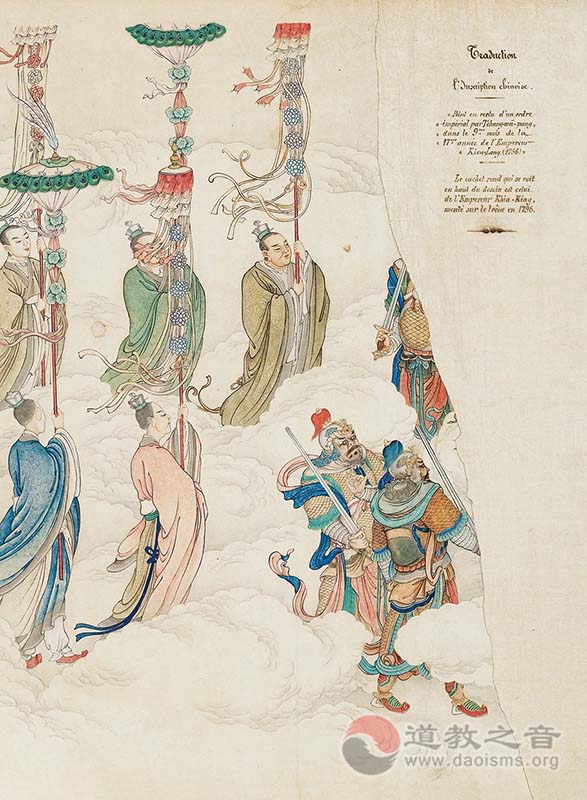 Traduction
de
l'Inscription chinoise.
« Peint en vertu d'un ordre
« impérial par Tchang-wei-pang,
« dans le 9me mois de la
« 17me année de l'Empereur
« Kien-Long. (1736) »
Le cachet rond qui se voit
en haut du dessin est celui
de l'Empereur Khia-King,
monté sur le trône en 1796.
道教之音
www.daoisms.org